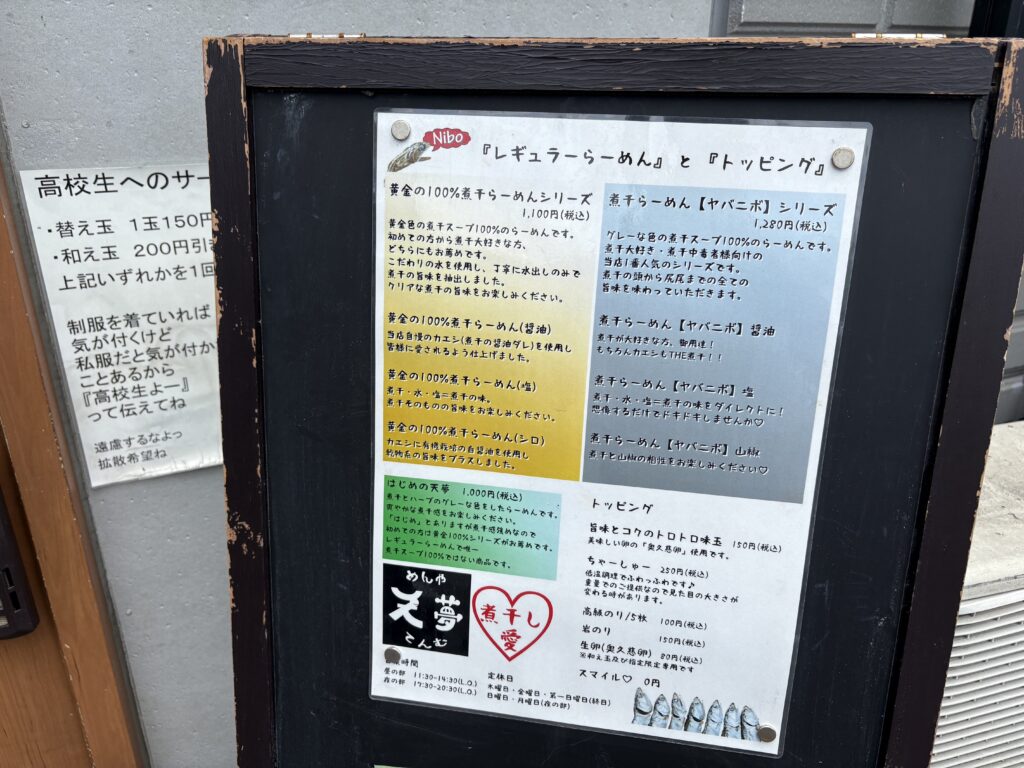 高校生へのサー
・替え玉 1玉150円
・和え玉 200円引き
上記いずれかを1回
制服を着ていれば
気が付くけど
私服だと気が付か
ことあるから
『高校生よー』
って伝えてね
遠慮するなよっ
拡散希望ね
Nibo
『レギュラーらーめん』と『トッピング』
黄金の100%煮干らーめんシリーズ
1,100円(税込)
黄金色の煮干スープ100%のらーめんです。
初めての方から煮干大好きな方、
どちらにもお薦めです。
こだわりの水を使用し、丁寧に水出しのみで
煮干の旨味を抽出しました。
クリアな煮干の旨味をお楽しみください。
黄金の100%煮干らーめん(醤油)
当店自慢のカエシ(煮干の醤油ダレ)を使用し
皆様に愛されるよう仕上げました。
黄金の100%煮干らーめん(塩)
煮干・水・塩=煮干の味。
煮干そのものの旨味をお楽しみください。
黄金の100%煮干らーめん(シロ)
カエシに有機栽培の白醤油を使用し
乾物系の旨味をプラスしました。
煮干らーめん【ヤバニボ】シリーズ
1,280円(税込)
グレーな色の煮干スープ100%のらーめんです。
煮干大好き・煮干中毒者様向けの
当店1番人気のシリーズです。
煮干の頭から尻尾までの全ての
旨味を味わっていただきます。
煮干らーめん【ヤバニボ】醤油
煮干が大好きな方、御用達!
もちろんカエシもTHE煮干!!
煮干らーめん【ヤバニボ】塩
煮干・水・塩=煮干の味をダイレクトに!
想像するだけでドキドキしませんか♡
煮干らーめん【ヤバニボ】山椒
煮干と山椒の相性をお楽しみください♡
はじめの天夢 1,000円(税込)
煮干とハーブのグレーな色をしたらーめんです。
爽やかな煮干感をお楽しみください。
「はじめ」とありますが煮干感強めなので
初めての方は黄金100%シリーズがお薦めです。
レギュラーらーめんで唯一
煮干スープ100%ではない商品です。
めんや
天夢
てんむ
煮干し
愛
営業時間
昼の部 11:30-14:30(L.O.)
夜の部 17:30-20:30(L.O.)
定休日
木曜日・金曜日・第一日曜日(終日)
日曜日・月曜日(夜の部)
トッピング
旨味とコクのトロトロ味玉 150円(税込)
美味しい卵の「奥久慈卵」使用です。
ちゃーしゅー 250円(税込)
低温調理でふわっふわです♪
重量でのご提供なので見た目の大きさが
変わる時があります。
高級のり/5枚 100円(税込)
岩のり 150円(税込)
生卵(奥久慈卵) 80円(税込)
※和え玉及び指定限定専用です
スマイル♡ 0円